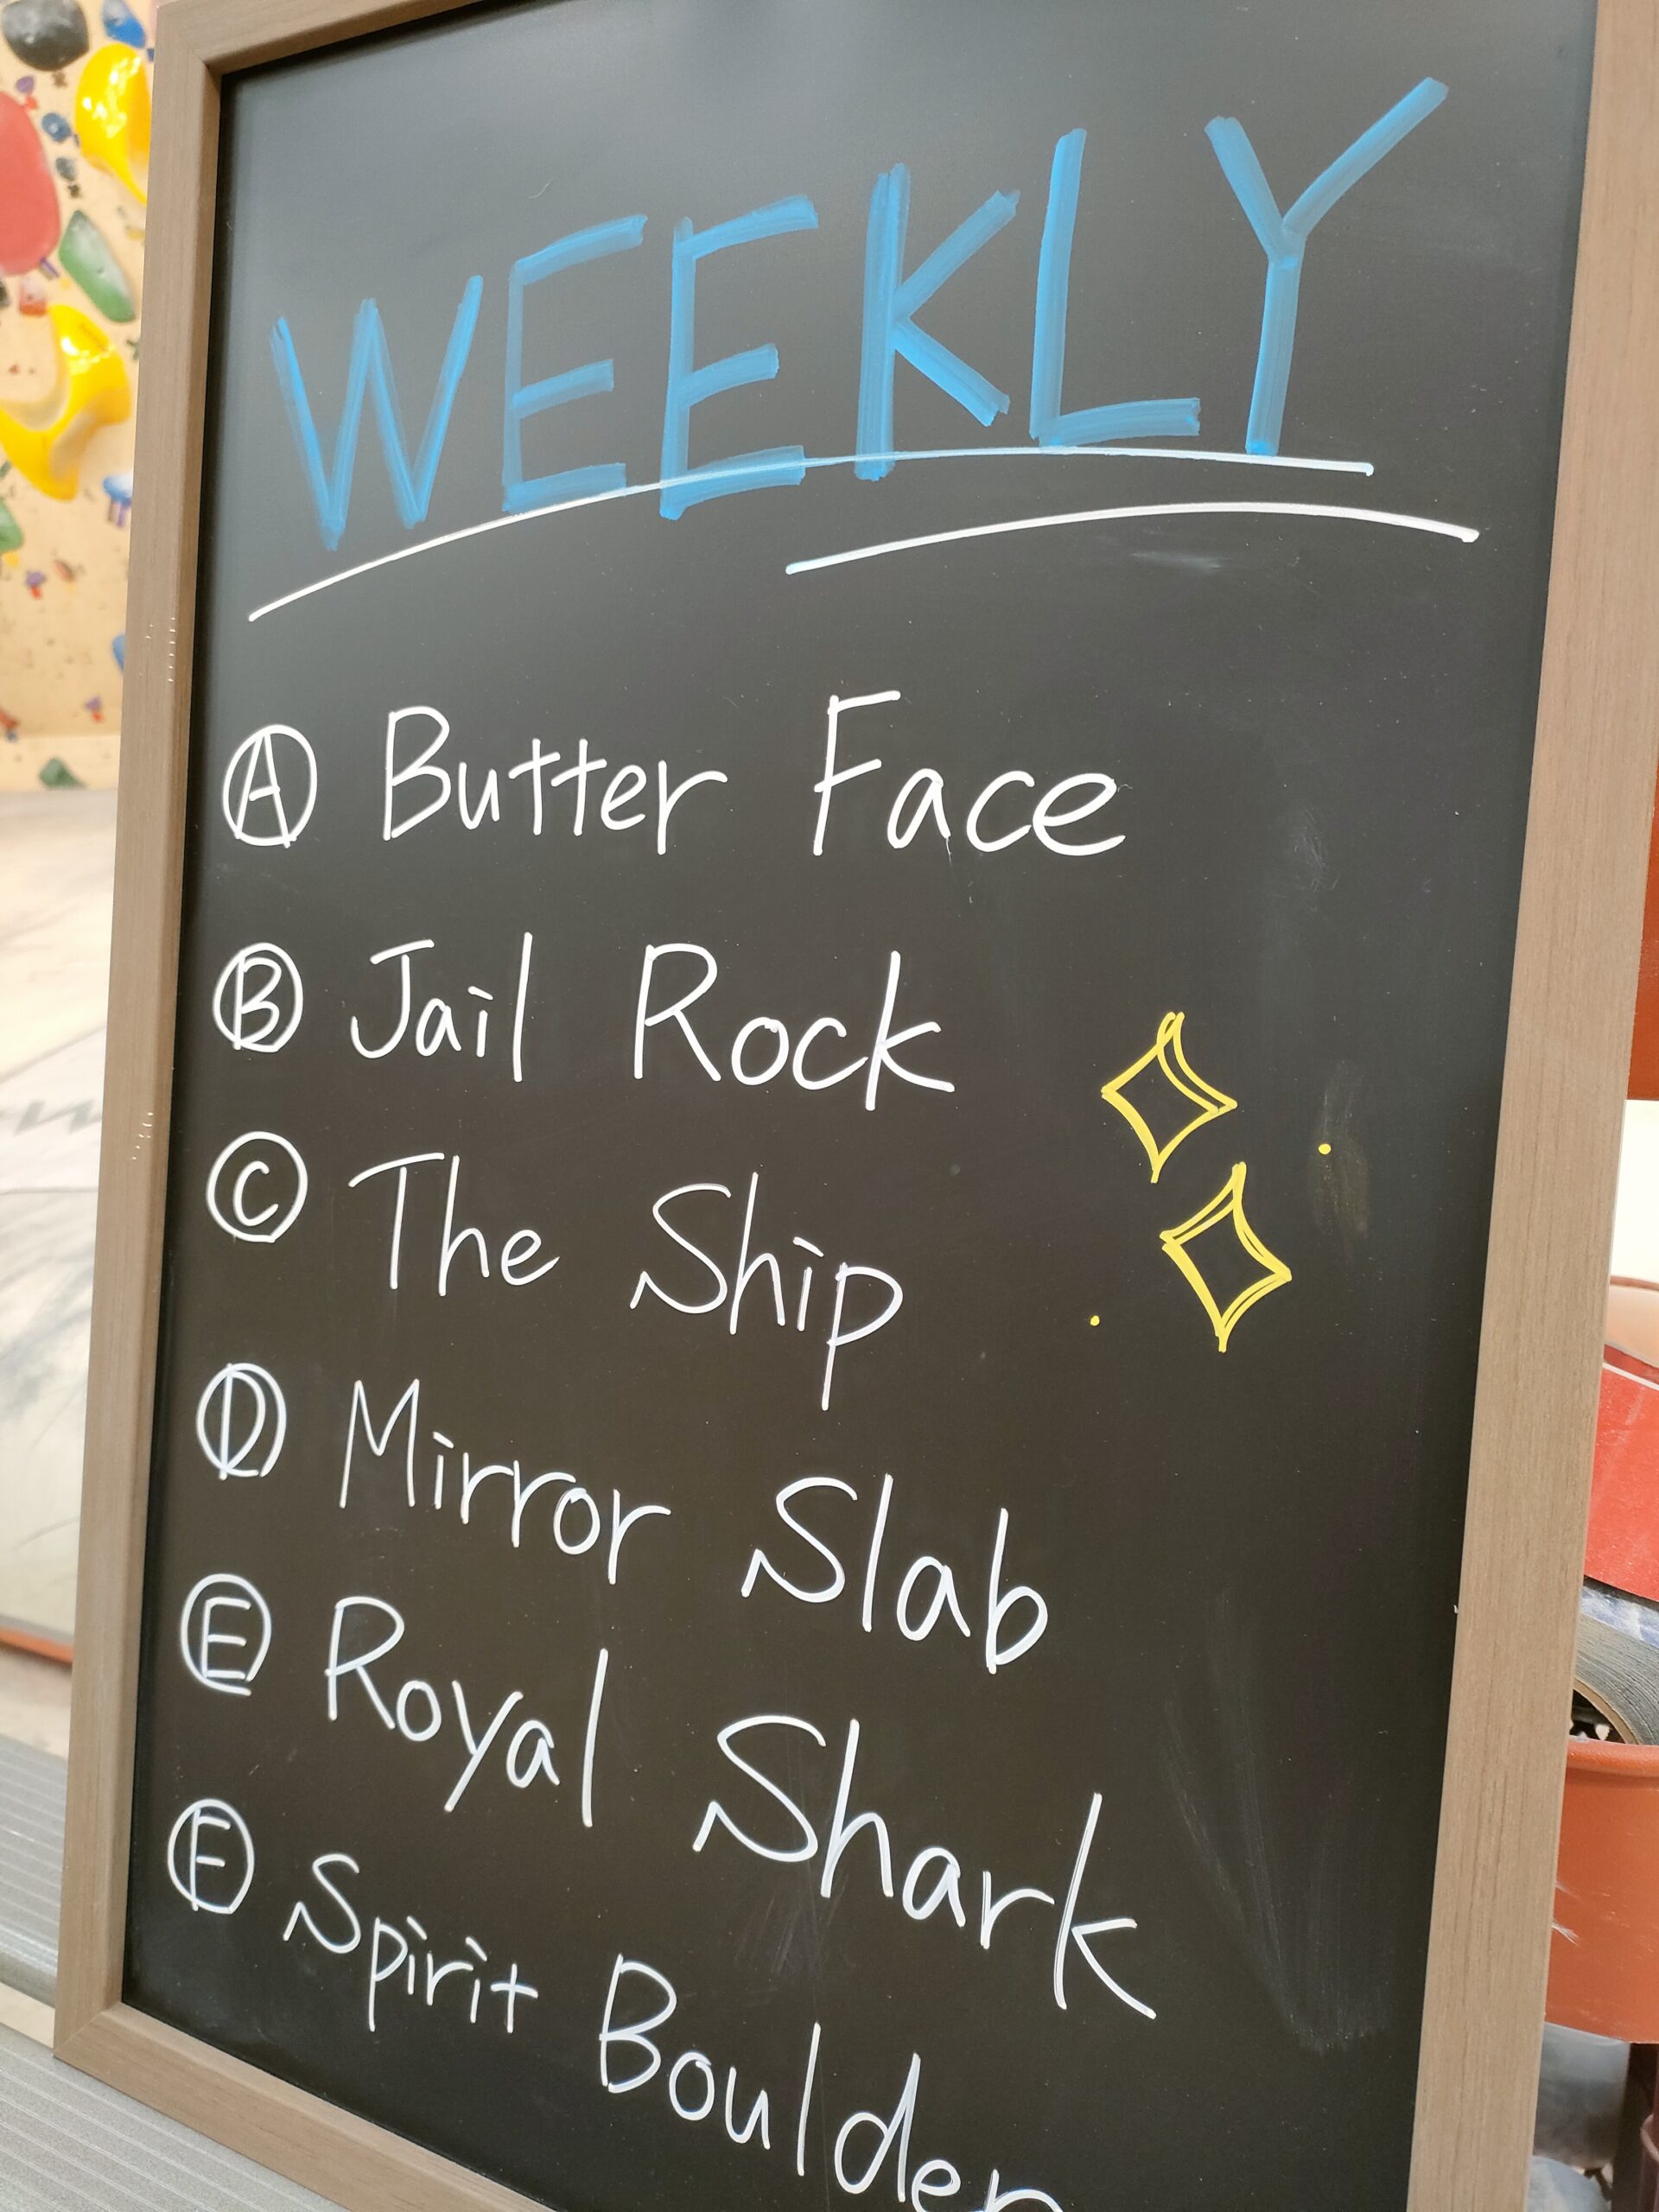 WEEKLY
Ⓐ Butter Face
Ⓑ Jail Rock
Ⓒ The Ship
Ⓓ Mirror Slab
Ⓔ Royal Shark
Ⓕ Spirit Boulder